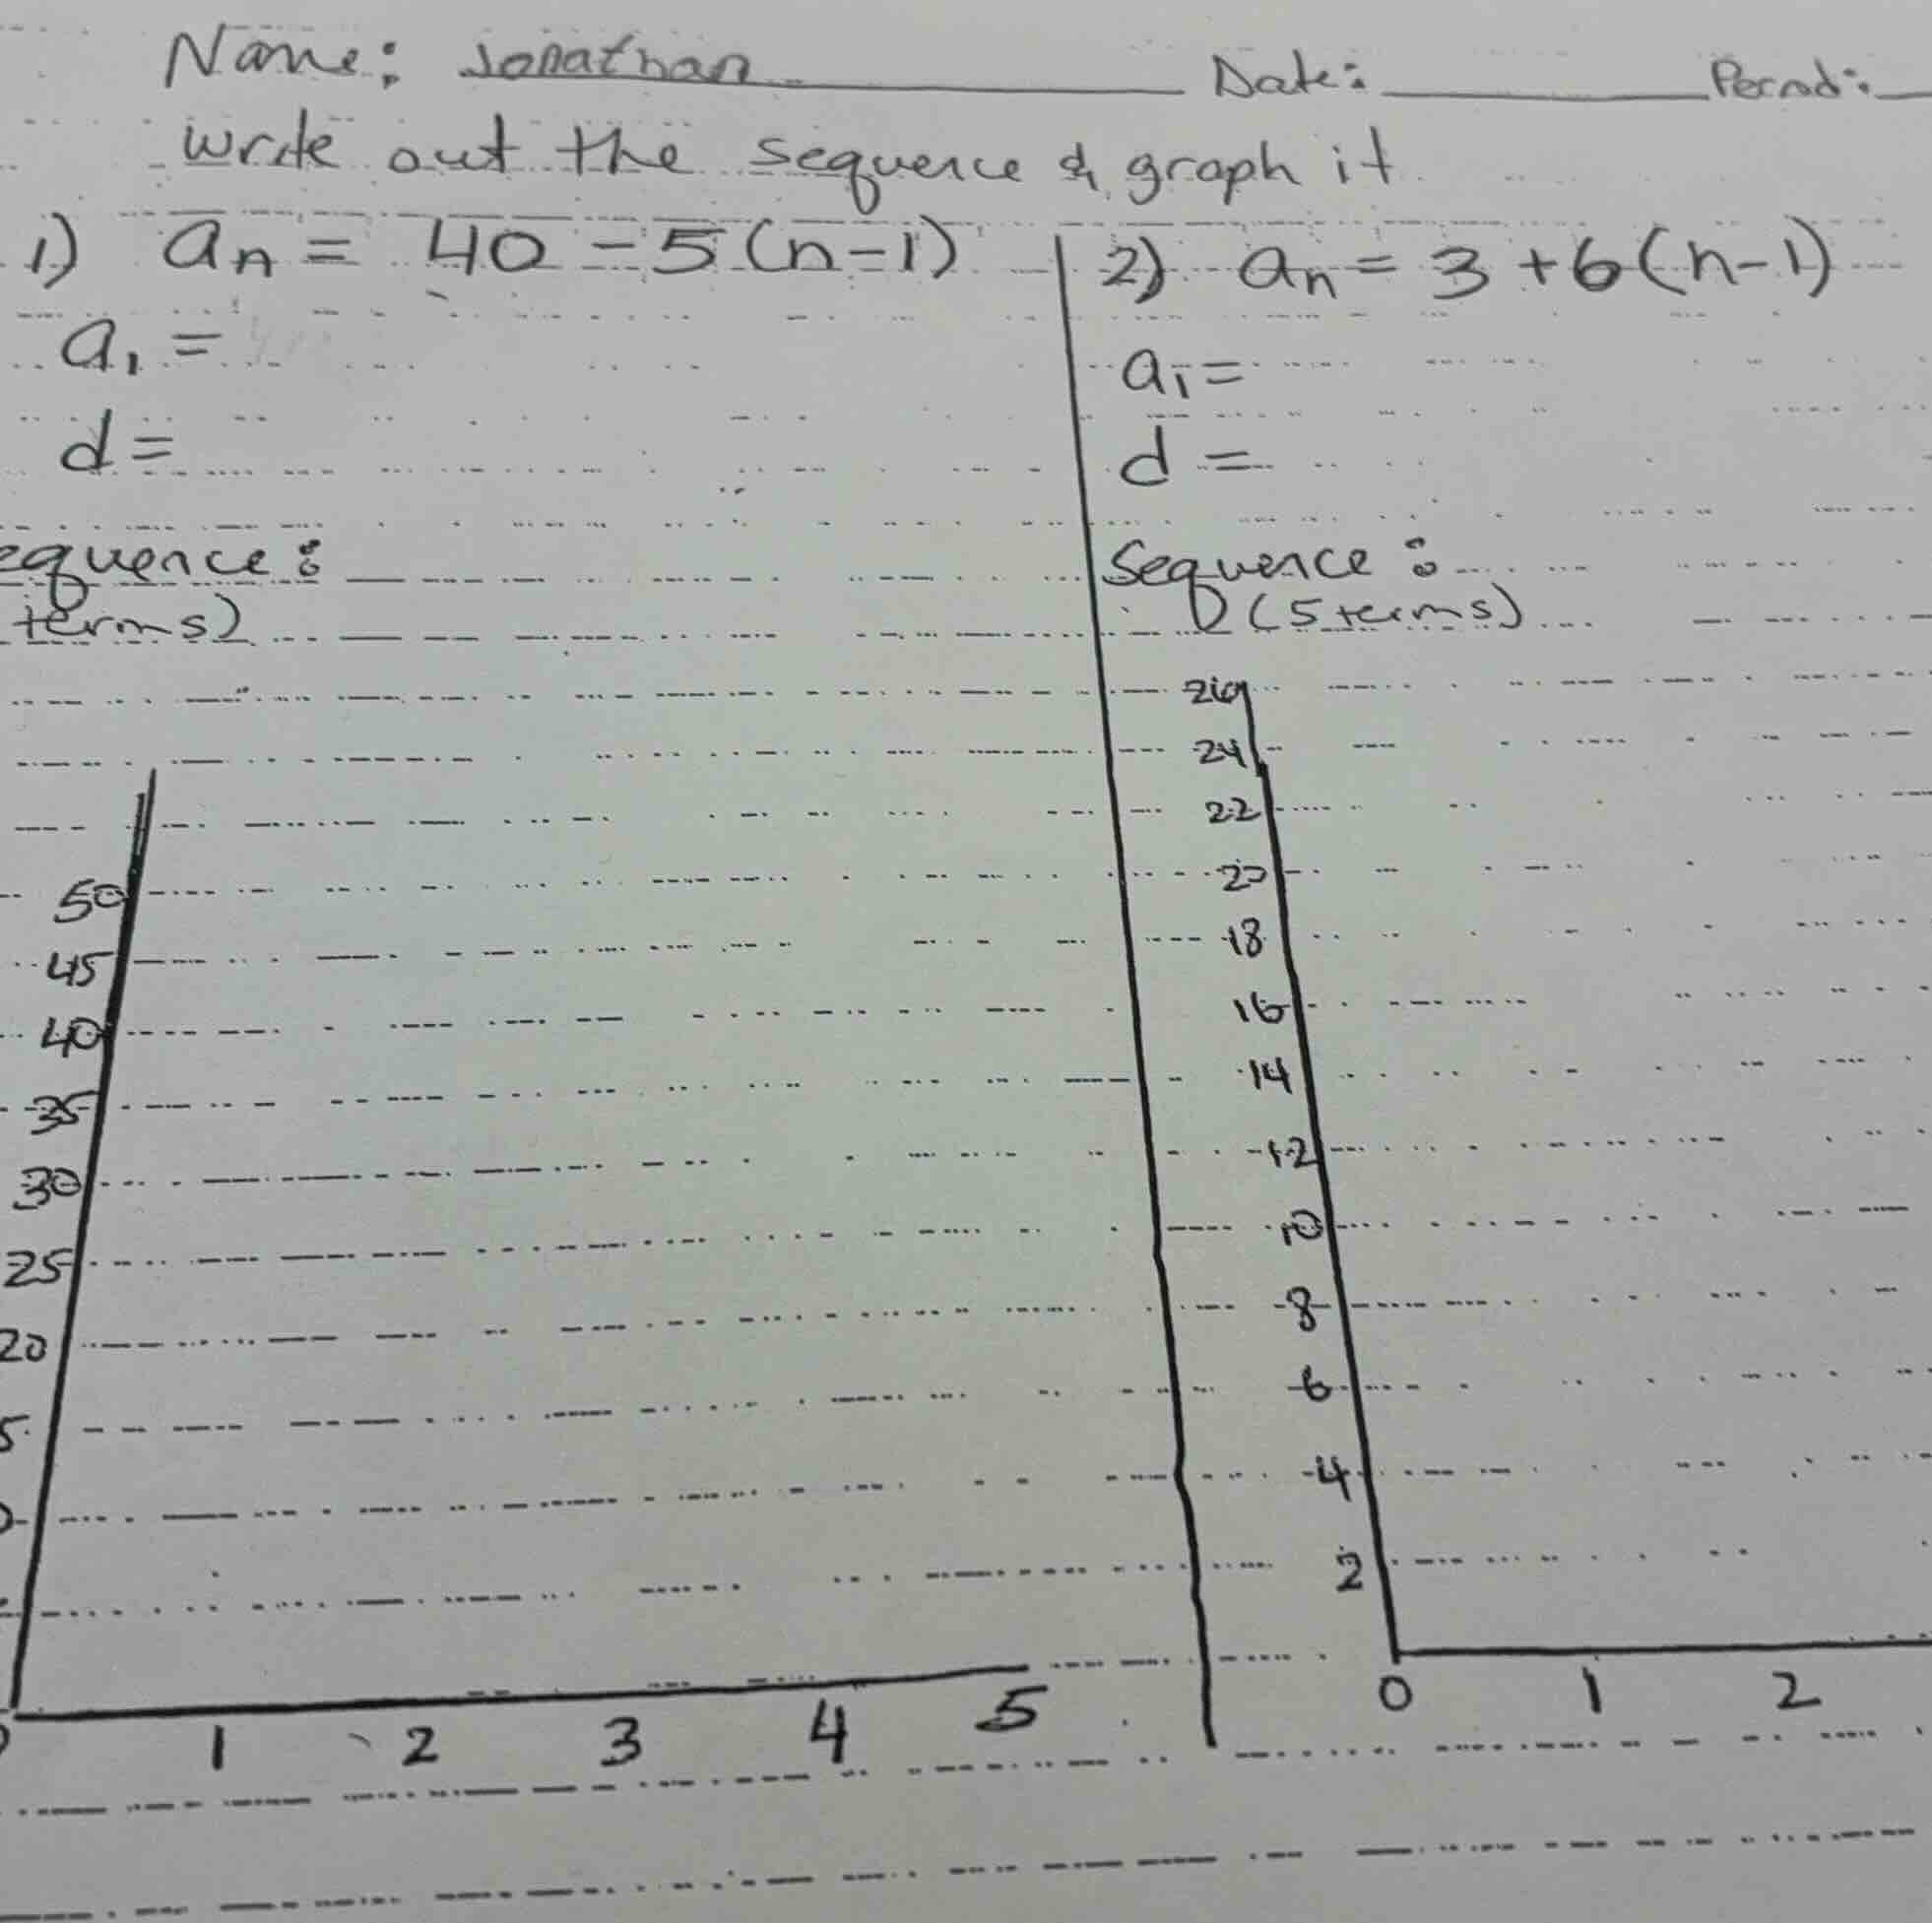 Name: Jonathan Date: Period:
write out the sequence & graph it
1) an = 40 - 5(n-1)
a1 =
d =
equence:
terms)
50
45
40
35
30
25
20
5
1 2 3 4 5
2) an = 3 + 6(n-1)
a1 =
d =
Sequence:
(5 terms)
26
24
22
20
18
16
14
12
10
8
6
4
2
0 1 2